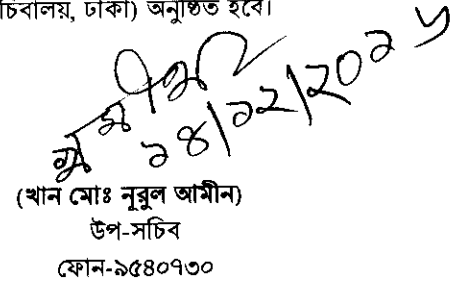 চিবালয়, ঢাকা) অনুষ্ঠিত হবে।
১৪/১২/২০১৬
(খান মোঃ নূরুল আমীন)
উপ-সচিব
ফোন-৯৫৪০৭৩০